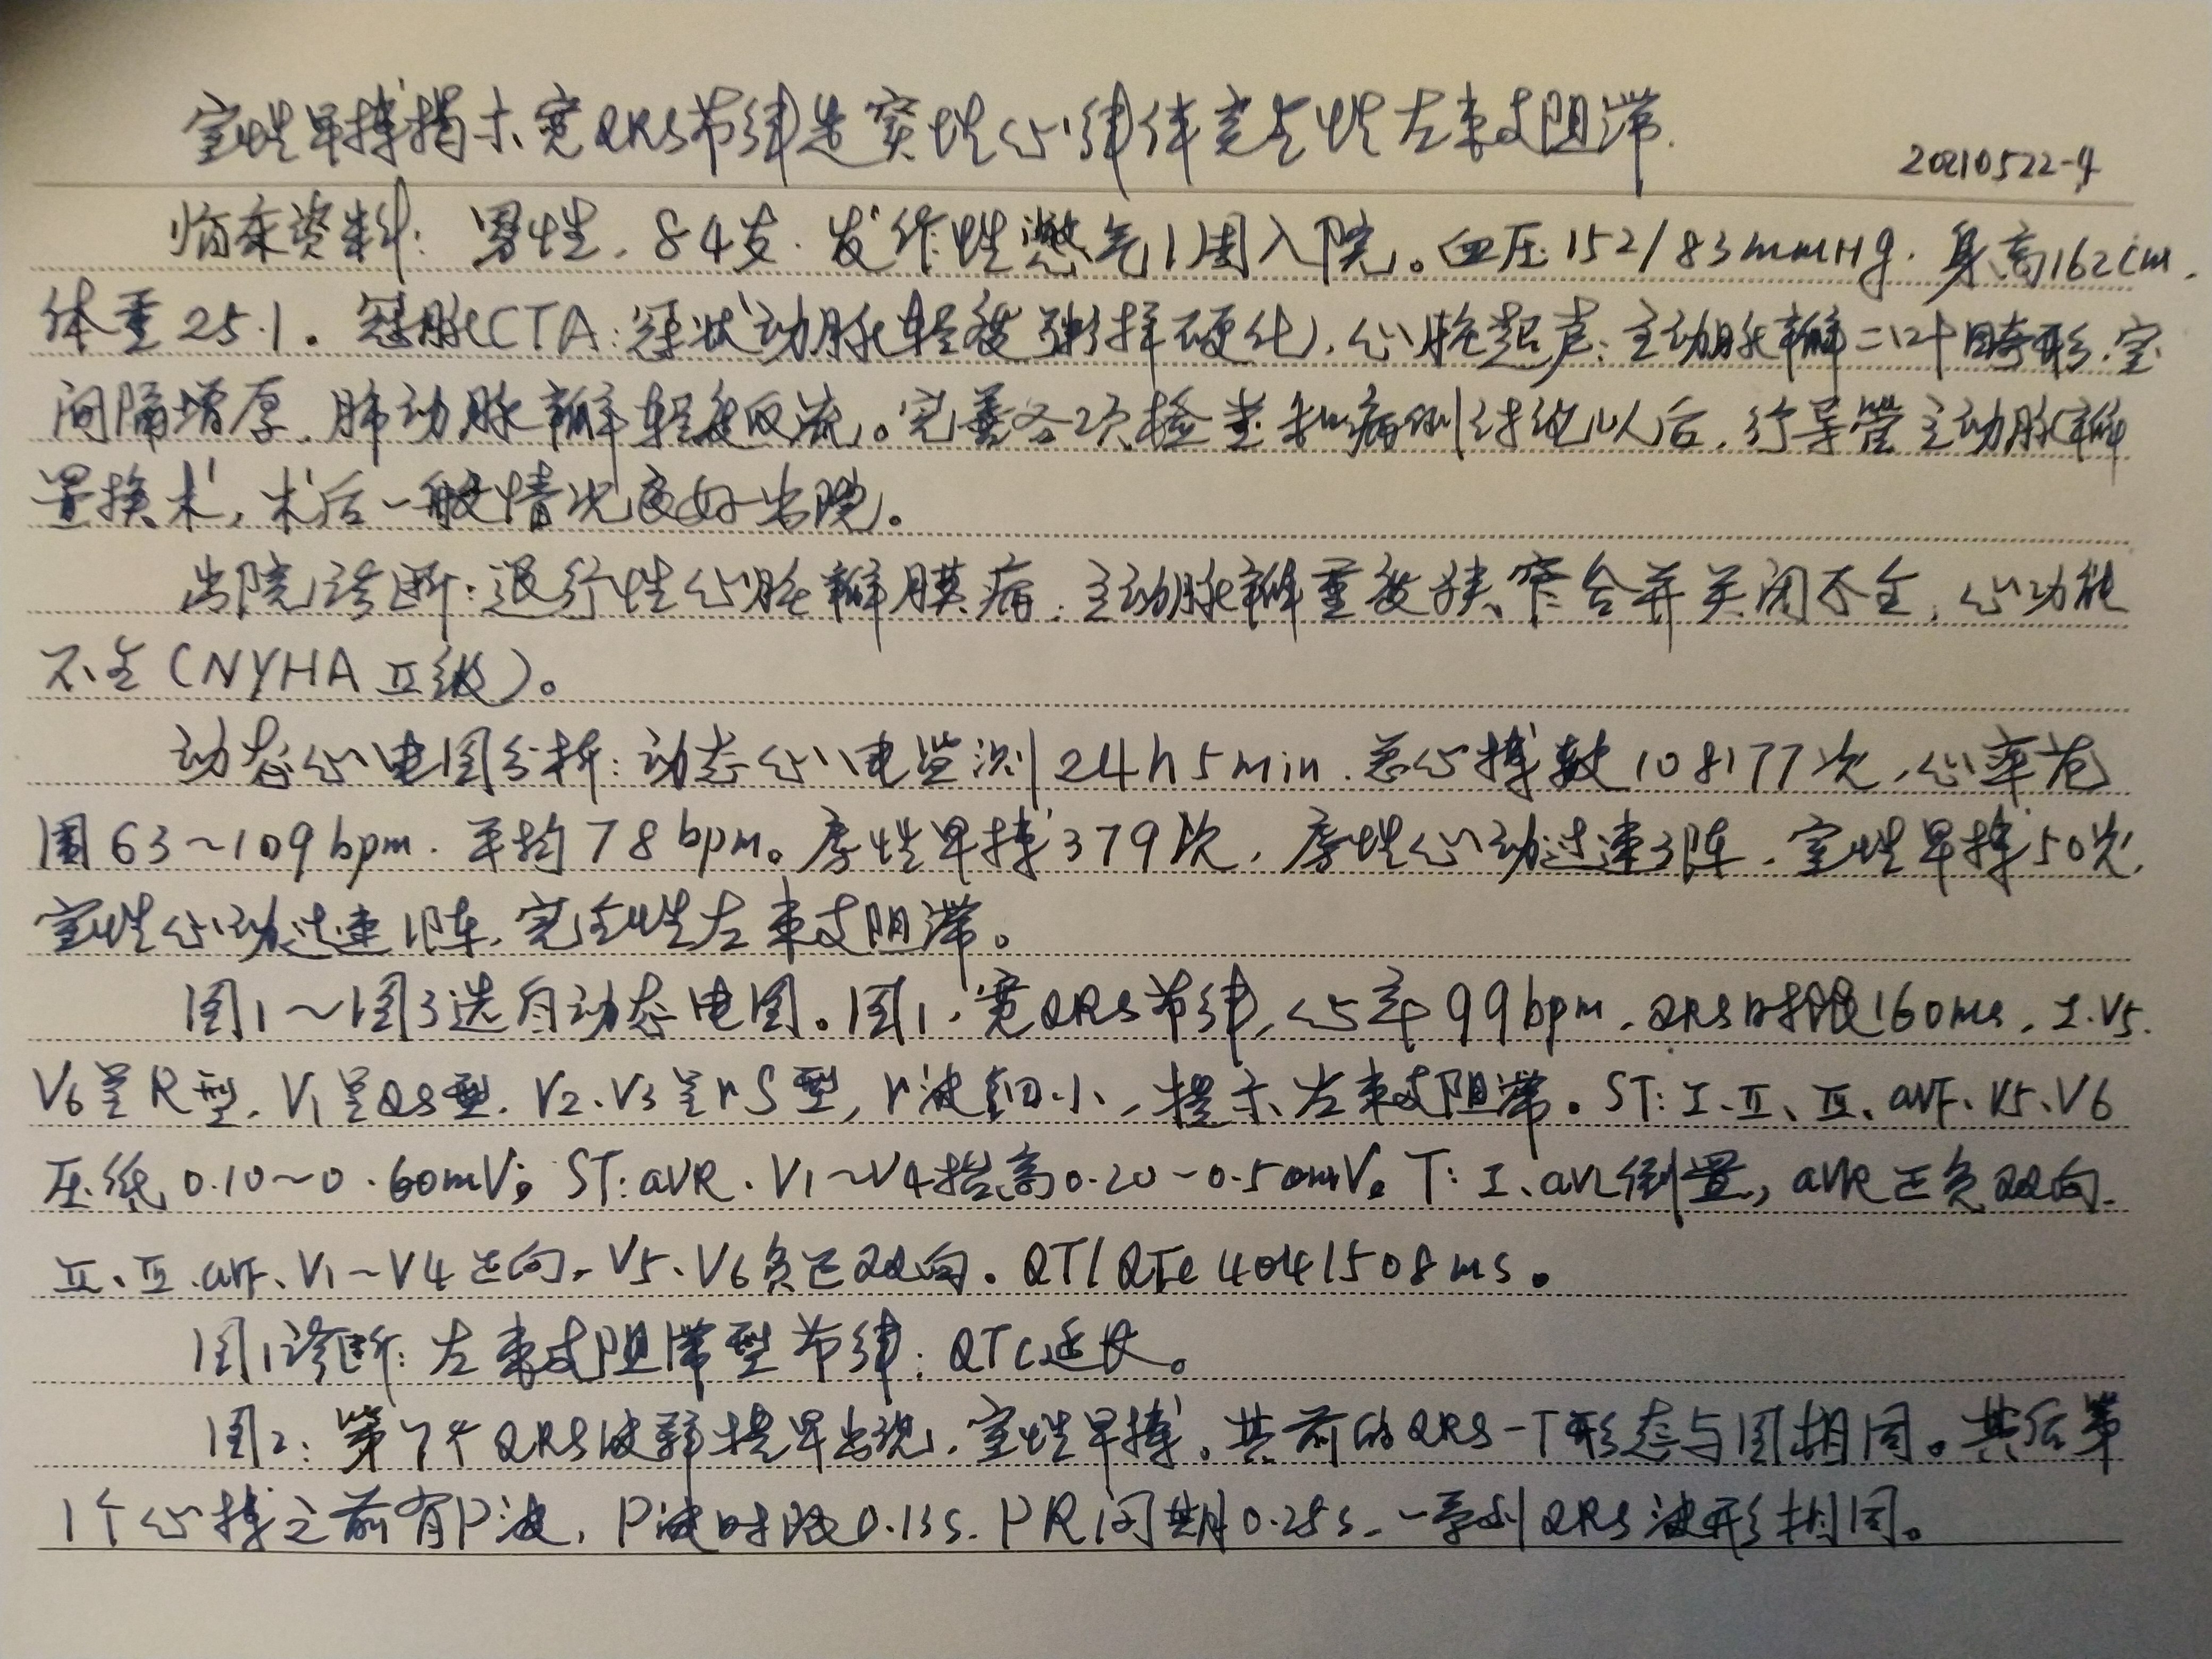 室性早搏揭示宽QRS节律是窦性心律伴完全性左束支阻滞.
20210522-4
临床资料: 男性, 84岁. 发作性憋气1周入院。血压152/83mmHg. 身高162cm,
体重25.1。冠脉CTA:冠状动脉轻度粥样硬化, 心脏超声:主动脉瓣二叶畸形.室
间隔增厚, 肺动脉瓣轻度反流。完善各项检查和病例讨论以后, 行导管主动脉瓣
置换术, 术后一般情况良好出院。
出院诊断: 退行性心脏瓣膜病. 主动脉瓣重度狭窄合并关闭不全, 心功能
不全(NYHA Ⅱ级)。
动态心电图分析: 动态心电监测24h5min. 总心搏数108177次, 心率范
围63~109bpm. 平均78bpm。房性早搏379次, 房性心动过速3阵, 室性早搏50次,
室性心动过速1阵, 完全性左束支阻滞。
图1~图3选自动态电图。图1, 宽QRS节律, 心率99bpm, QRS时限160ms, I.V5.
V6呈R型, V1呈QS型. V2、V3呈rS型, r波细小, 提示左束支阻滞。ST: I、Ⅱ、Ⅲ、aVF、V5、V6
压低0.10~0.60mV; ST: aVR. V1~V4抬高0.20~0.50mV。T: I、aVL倒置, aVR正负双向.
Ⅱ、Ⅲ.aVF、V1~V4正向, V5、V6负正双向。QT/QTc 404/508ms。
图1诊断: 左束支阻滞型节律; QTc延长。
图2: 第7个QRS波群提早出现, 室性早搏。其前的QRS-T形态与图1相同。其后第
1个心搏之前有P波, P波时限0.13s. PR间期0.25s, 一系列QRS波形相同。